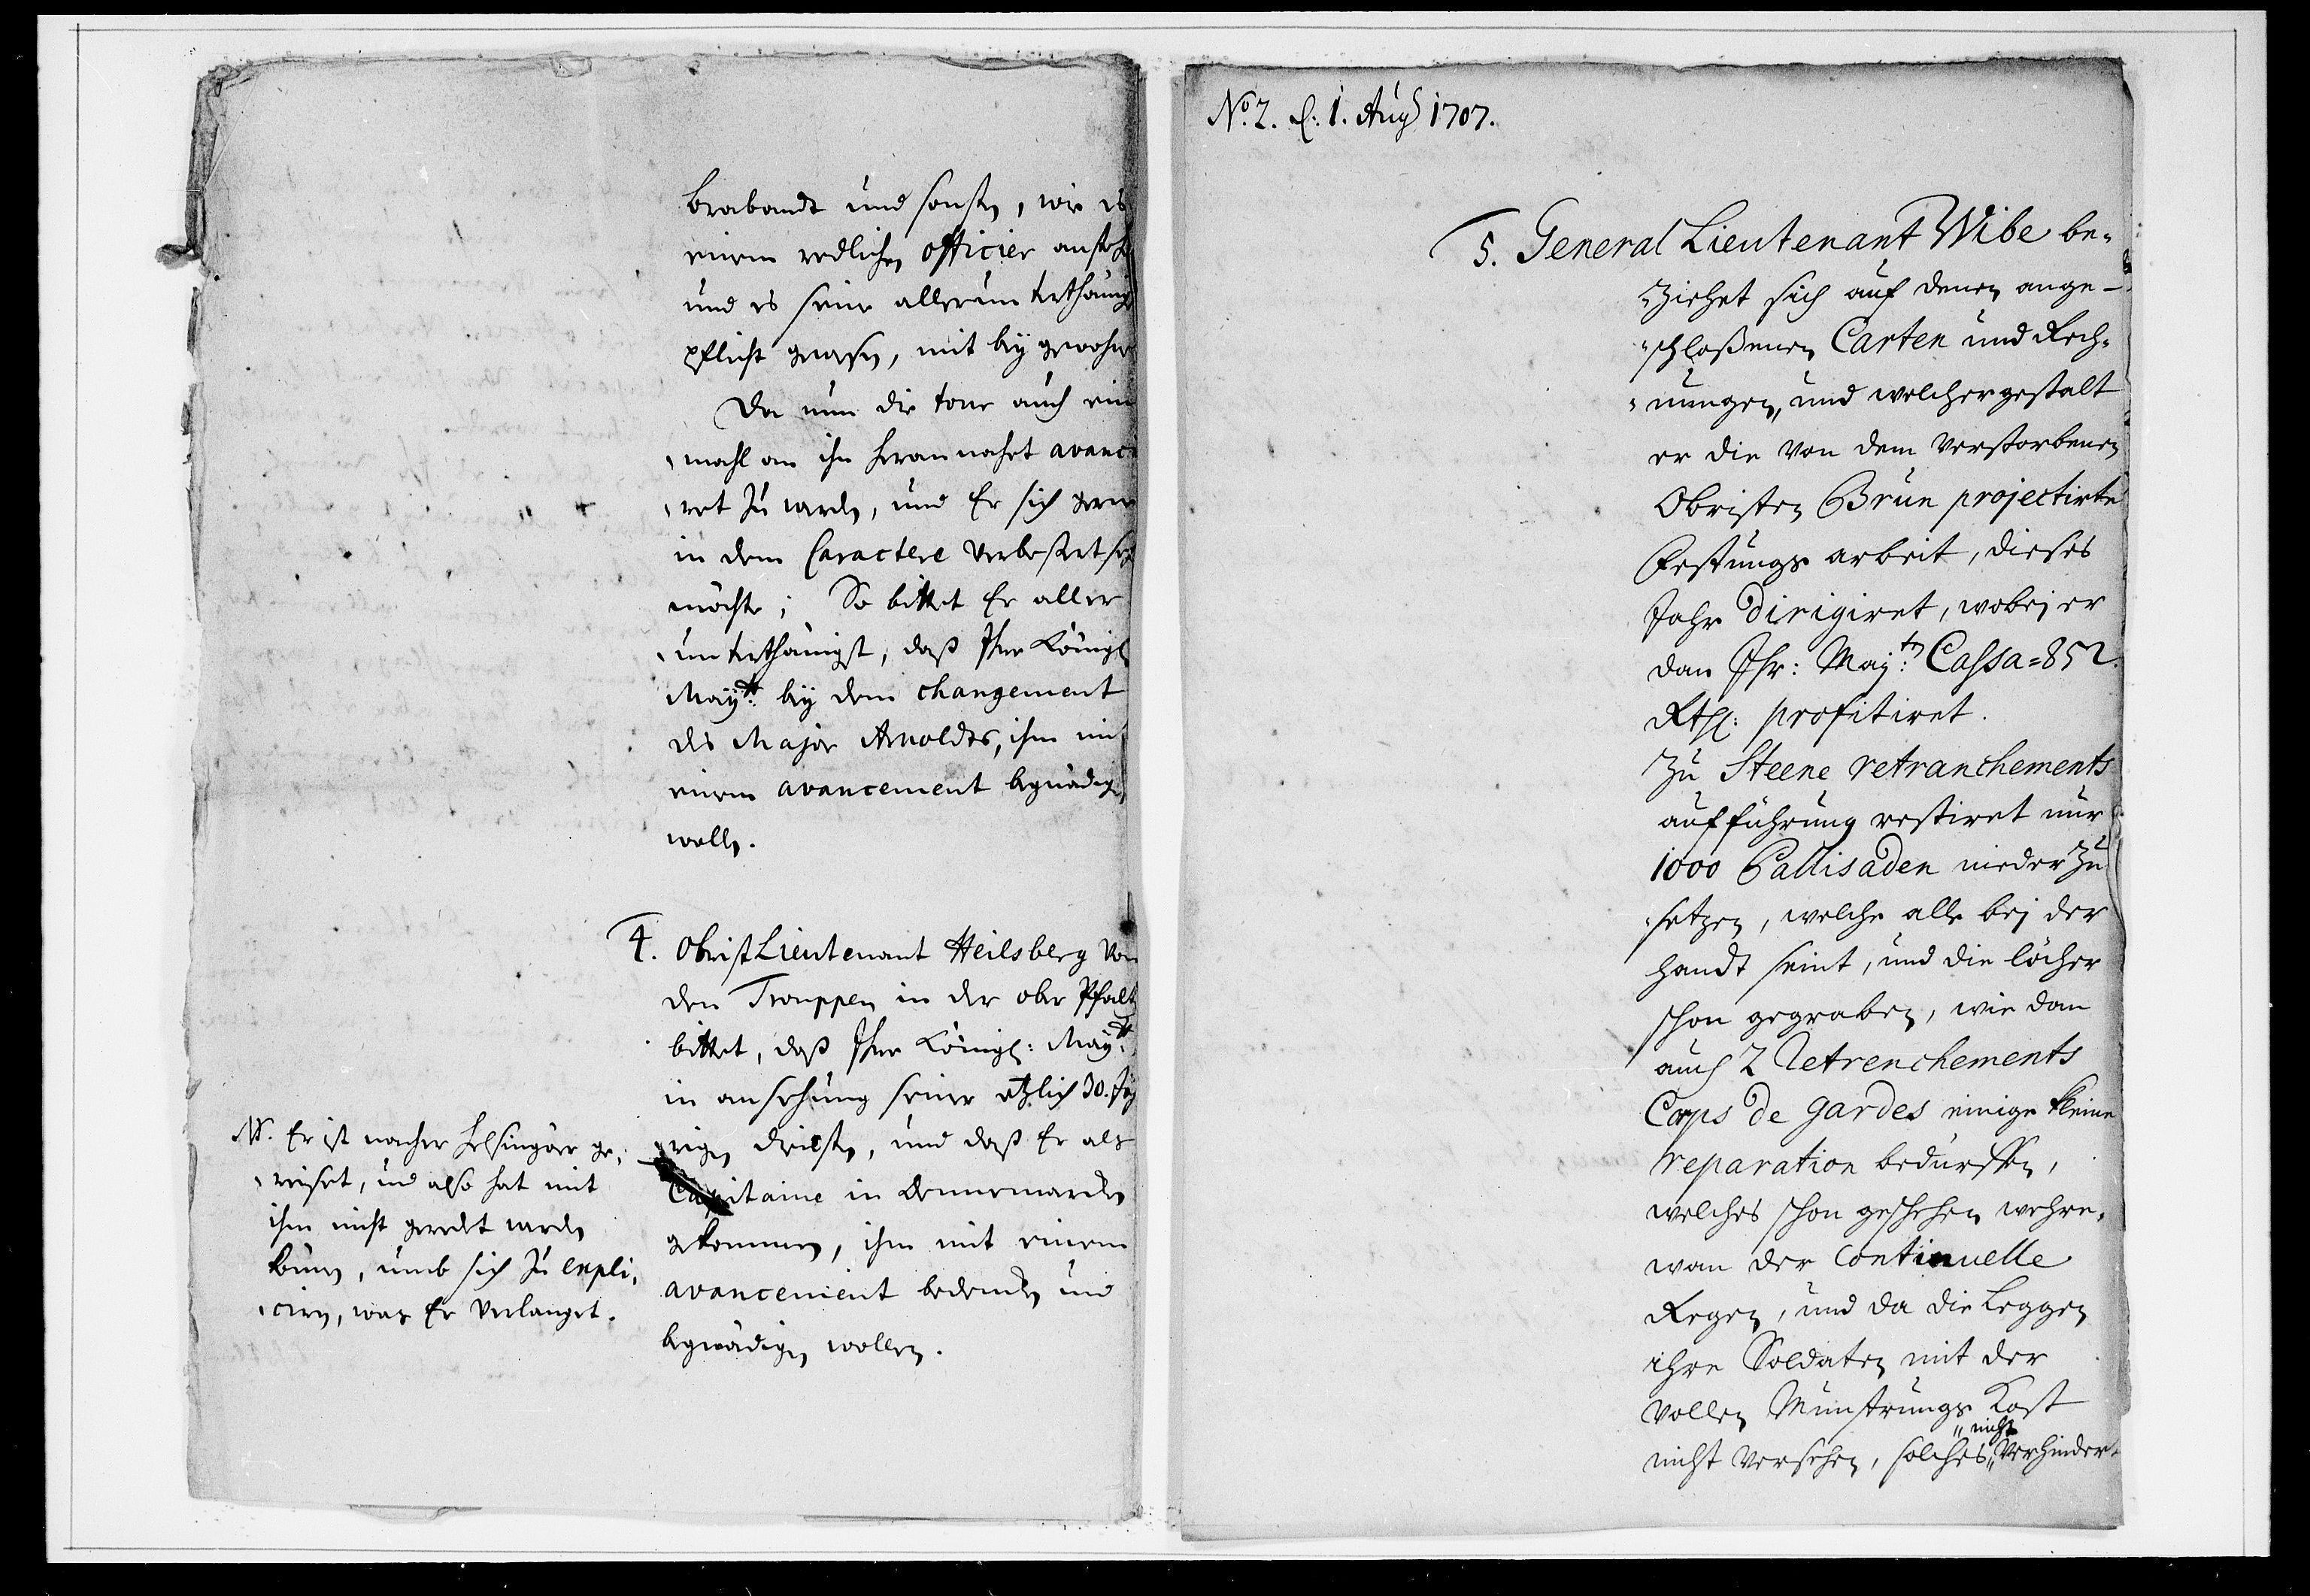 brabandt und sonsten, wie es
einem redlichen officier ansteh
und es seine allerunterthänig
pflicht gewesen, mit bey gewohn
Da nun die tour auch ein
mahl an ihn herannahet avanci
ret zu werden, und Er sich gerne
in dem Caractere verbeßert seh
möchte; So bittet Er aller
unterthänigst, daß Ihre Königl
Maÿtt: beÿ dem changement
des Major Arnoldts, ihn mit
einem avancement begnädigen
wolle.
4. Obrist Lieutenant Heilsberg von
den Trouppen in der ober Pfaltz
bittet, daß Ihre Königl: Maÿtt:
in ansehung seiner etzlich 30. Jäh
rigen diensten, und daß Er als
Capitaine in Dennemarcken
gekommen, ihn mit einem
avancement bedencken und
begnädigen wollen.
NB. Er ist nacher Helsingöer ge-
reiset, und also hat mit
ihm nicht geredet werden
können, umb sich zu expli-
ciren, was Er verlanget.
No. 2. d: 1. Aug 1707.
5. General Lieutenant Wibe be-
ziehet sich auf denen ange-
schloßenen Carten und Rech-
nungen, und welchergestalt
er die von dem verstorbenen
Obristen Brun projectirte
Festungs arbeit, dieses
Jahr dirigiret, wobej er
dan Ihr: Majtt: Cassa = 852.
Rthl: profitiret.
Zu Steene retranchements
aufführung restiret nur
1000 Pallisaden nieder zu
setzen, welche alle bej der
handt seint, und die löcher
schon gegraben, wie dan
auch 2 Retrenchements
Corps de gardes einige kleine
reparation bedürffen,
welches schon geschehen wehre,
wan der continuelle
Regen, und da die Leggen
ihre Soldaten mit der
vollen Munstrungs Kost
nicht versehen, solches "nicht" verhindert